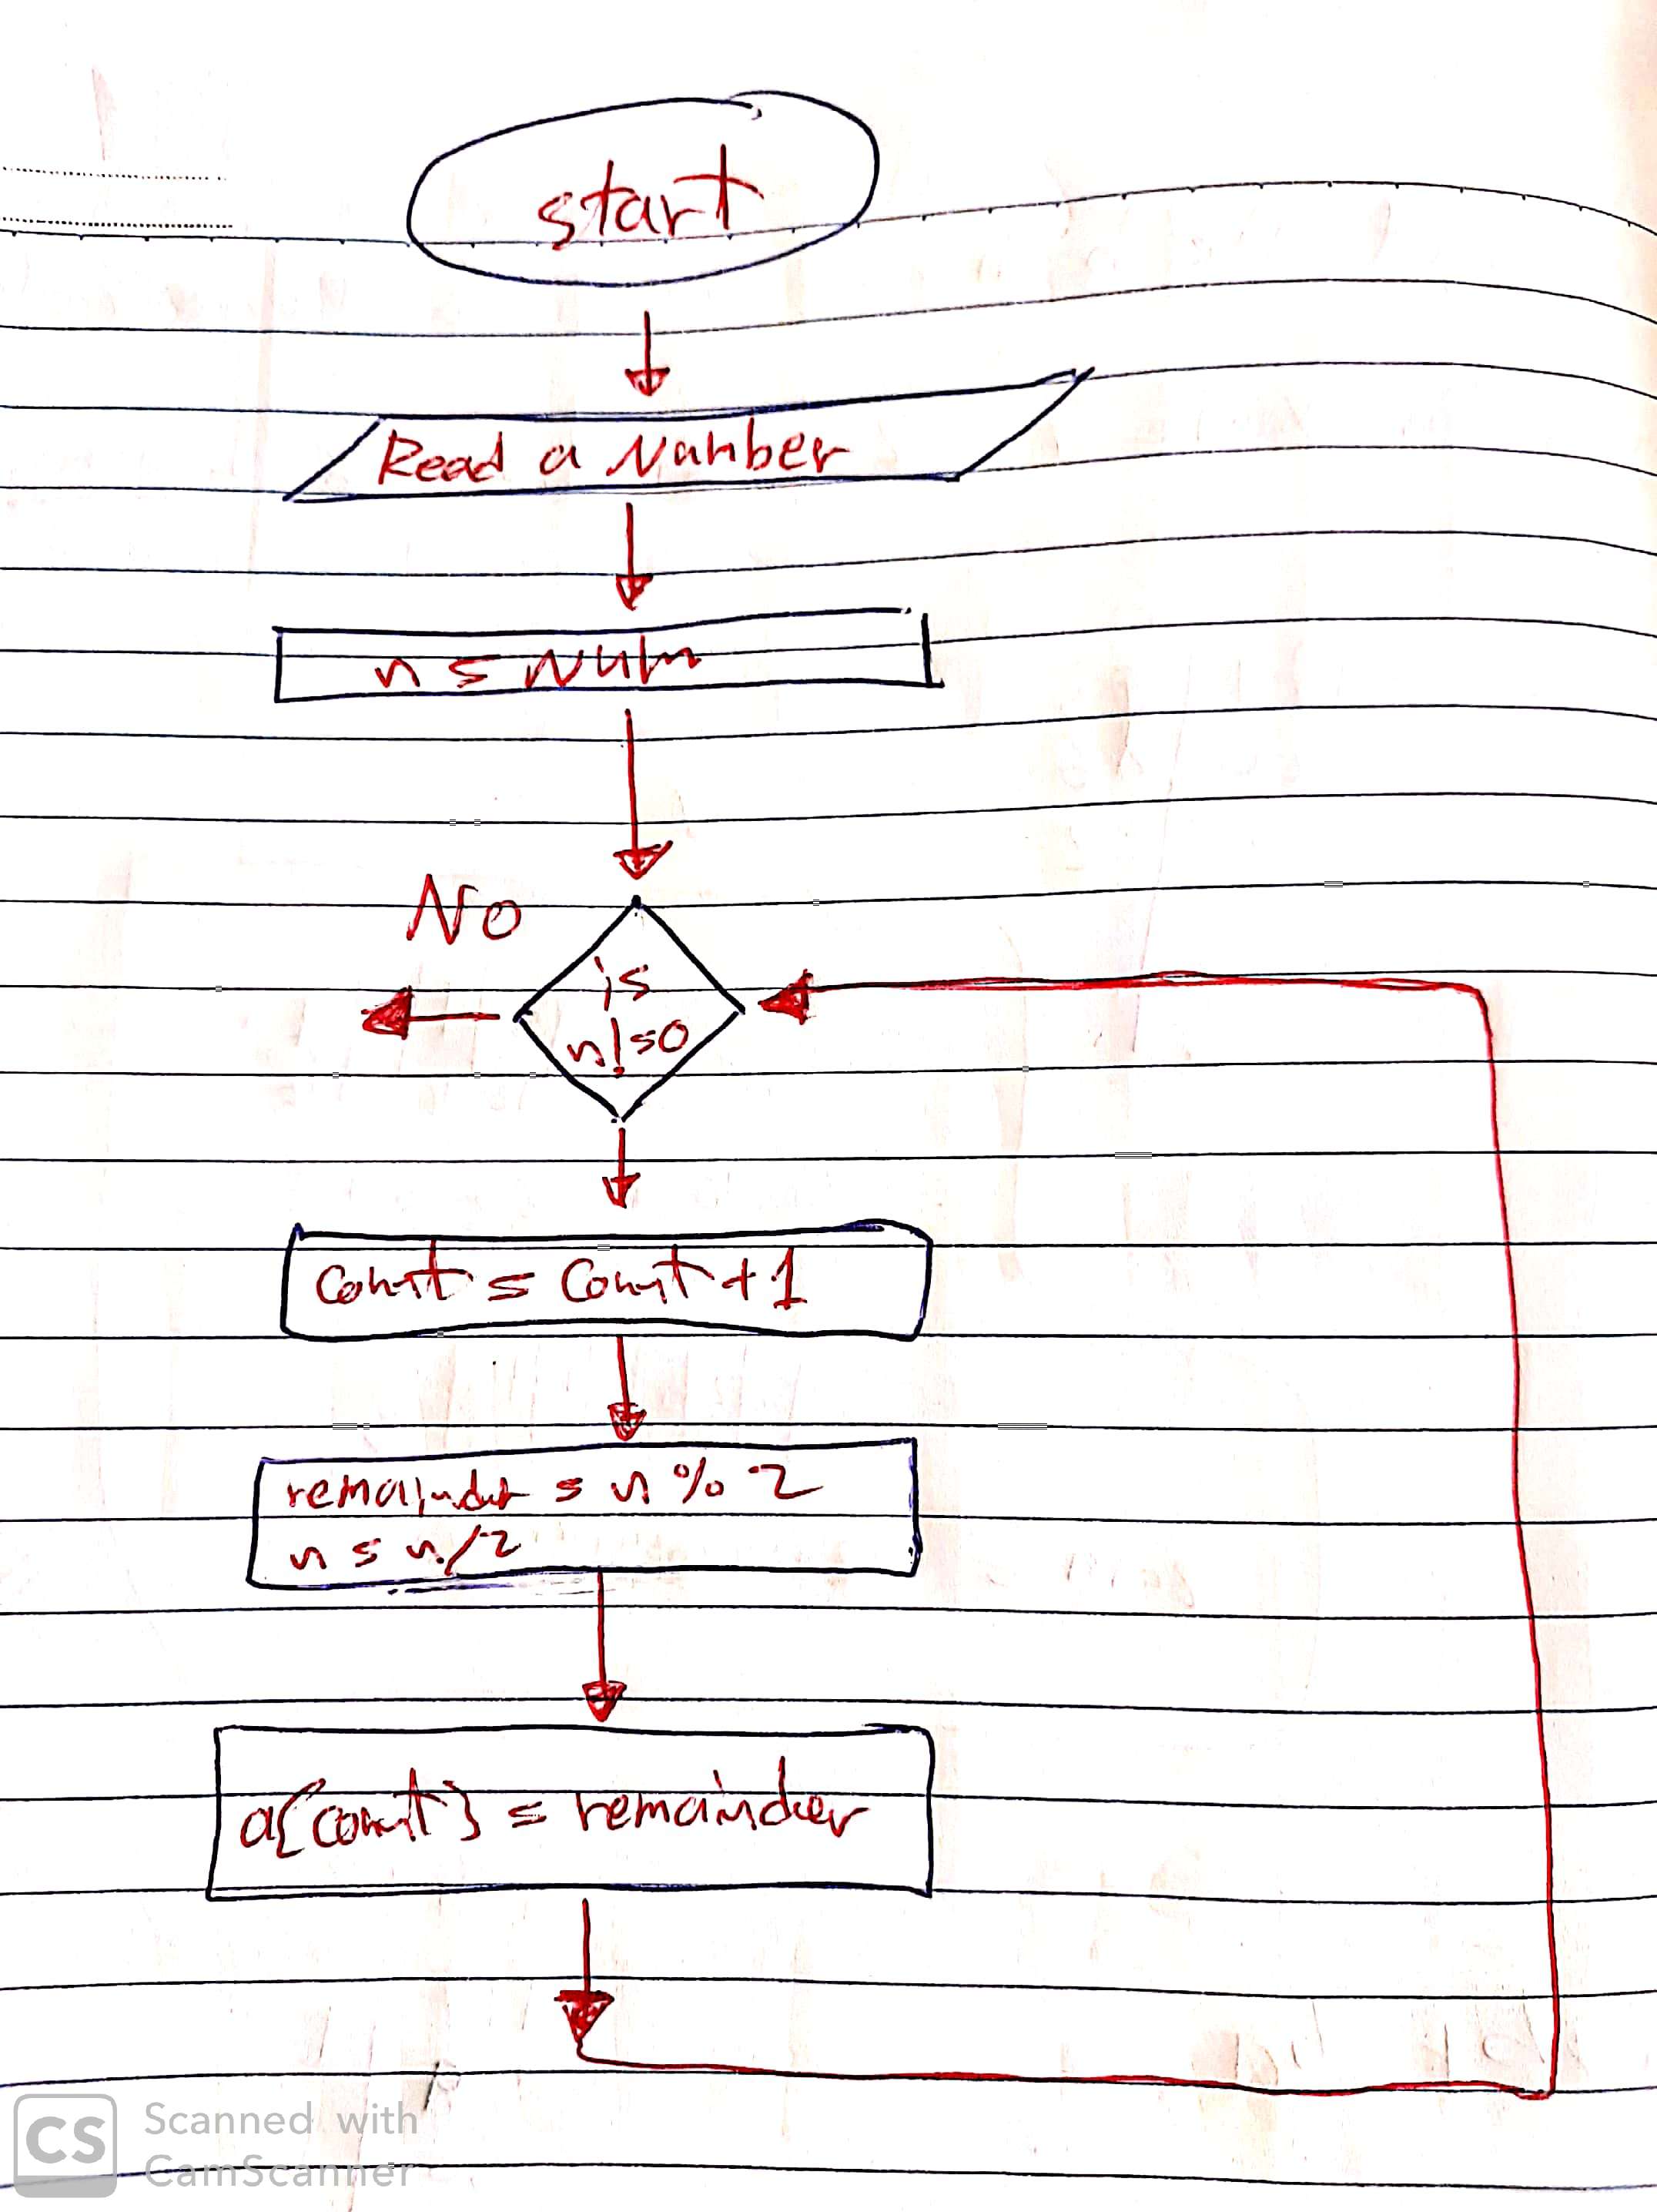 start
Read a Number
n = Num
No
is
n!=0
Count = Count + 1
remainder = n % 2
n = n/2
a{count} = remainder
CS Scanned with
CamScanner